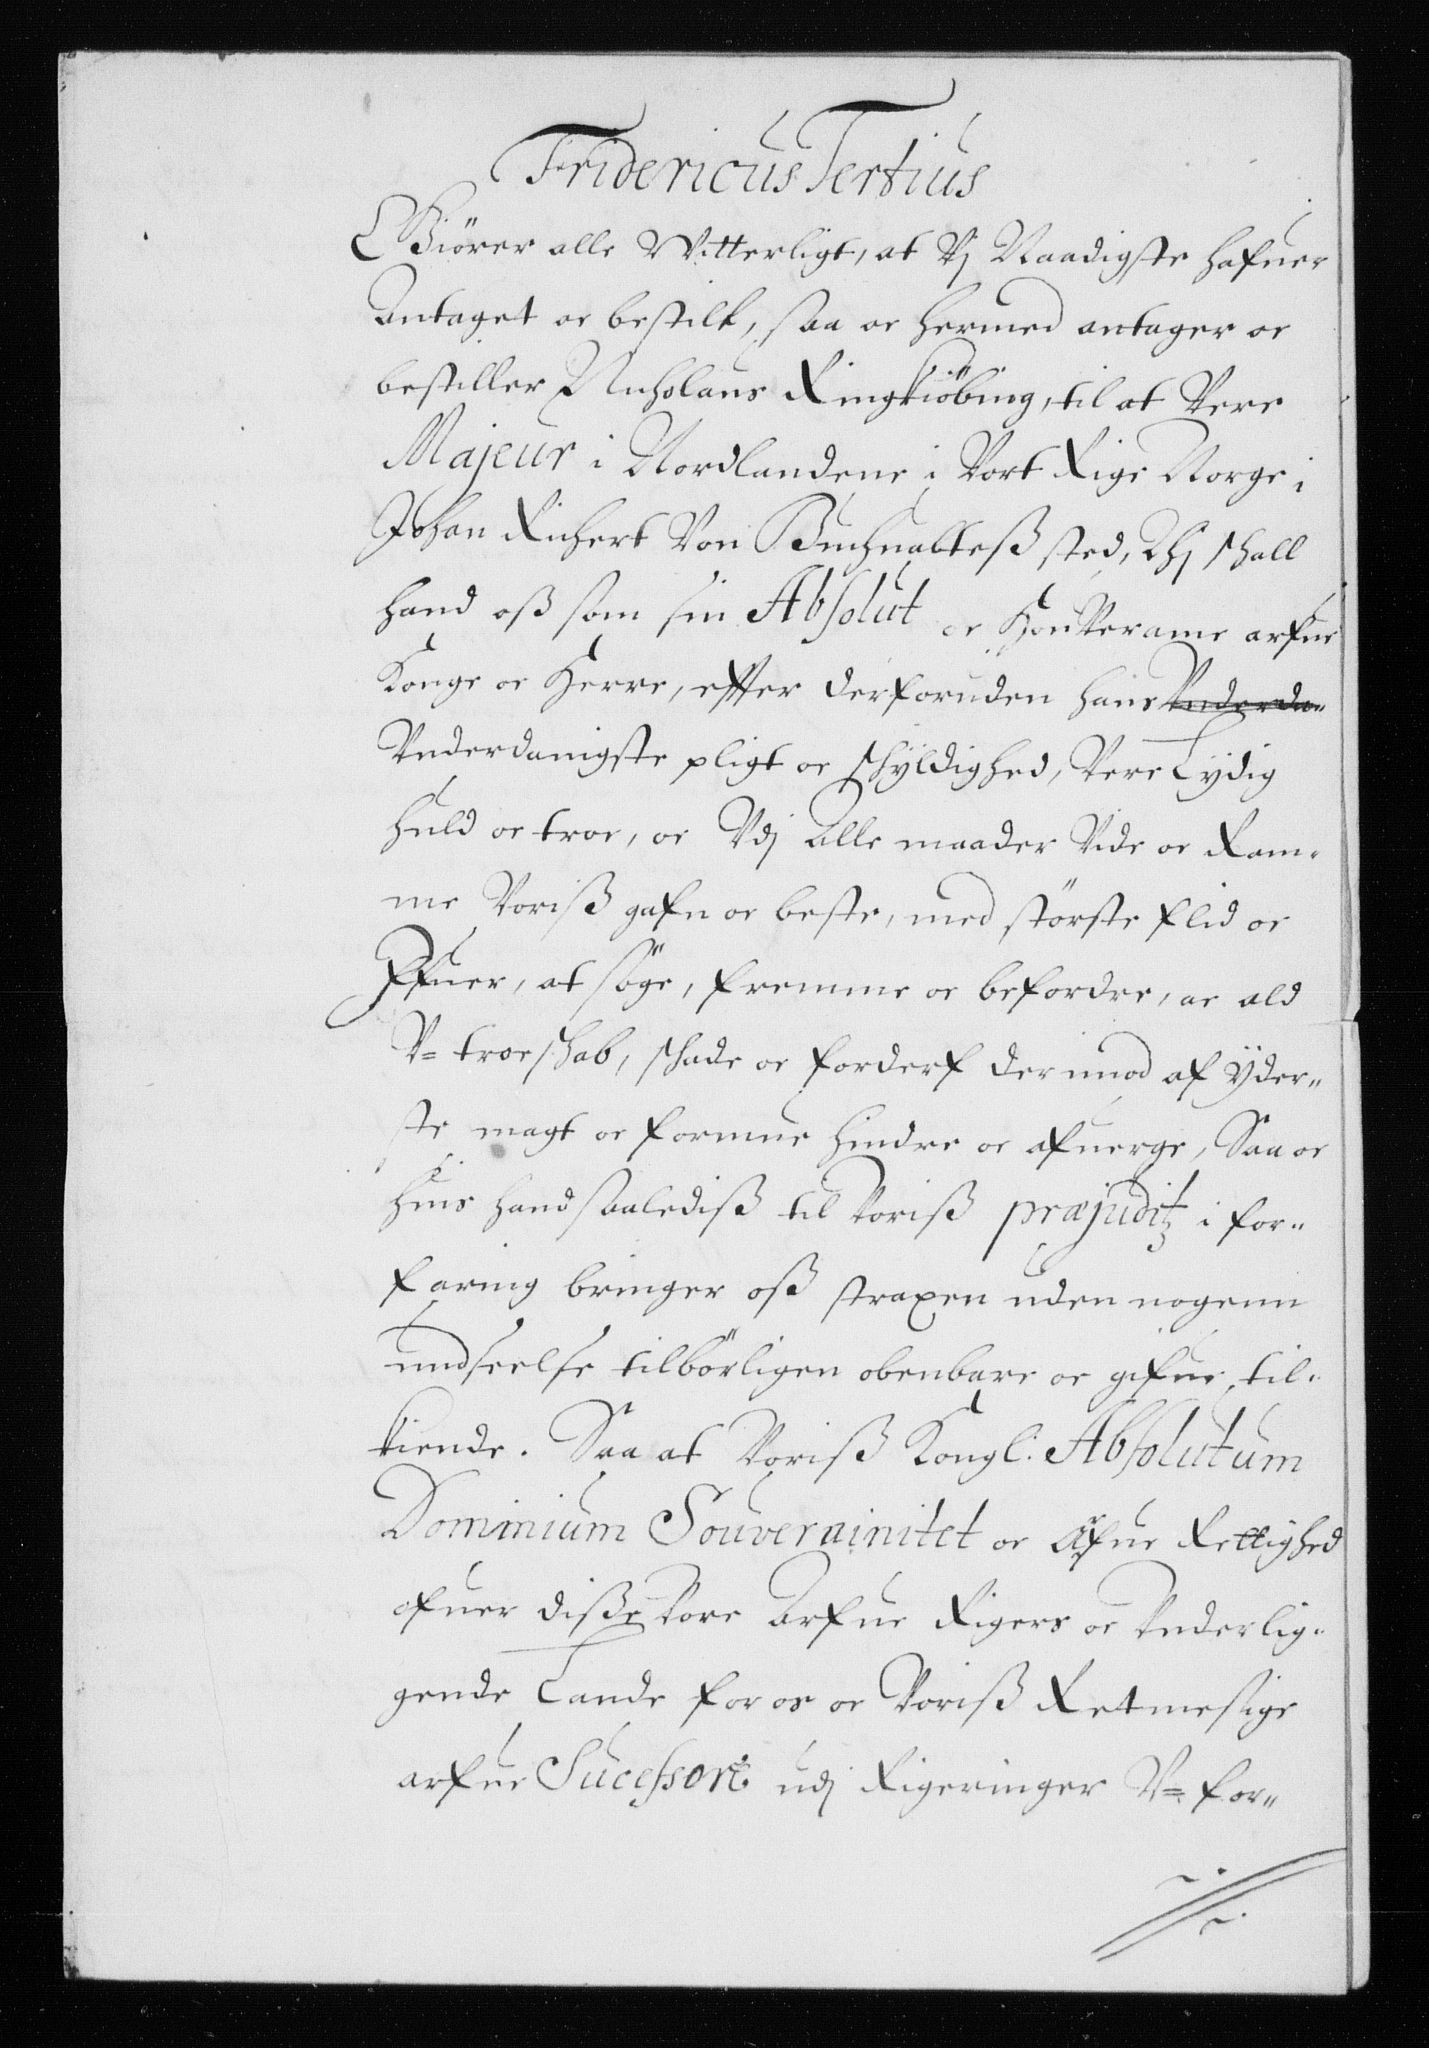 Fridericus Tertius
Giörer alle Witterligt, at Vj Naadigste hafuer
Antaget oc bestilt, saa oc hermed antager oc
bestiller Nicholaus Ringkiöbing, til at Vere
Majeur i Nordlandene i Vort Rige Norge i
Johan Richert Von Buchualteß sted, Thj schall
hand oß som sin Absolut oc Souveraine arfue
Konge oc Herre, effter derforuden hans Underda-
Underdanigste pligt oc schyldighed, Vere Lydig
huld oc troe, oc Udj Alle maader Vide oc Ram-
me Voriß gafn oc beste, med störste flid oc
Ifuer, at söge, fremme oc befordre, oc ald
V- troeschab, schade oc forderf der imod af ÿder-
ste magt oc formue hindre oc afuerge, Saa oc
huis hand saalediß til Voriß præjuditz i for-
faring bringer oß straxen uden nogenn
undseelse tilbörligen obenbare oc gifue til-
kiende. Saa at Voriß Kongl: Absolutum
Dominium Souverainitet oc Arfue Rettighed
ofuer diße Vore Arfue Rigers oc Underlig-
gende Lande for os oc Voriß Retmesige
arfue Sucessore udj Rigeringer V- for-